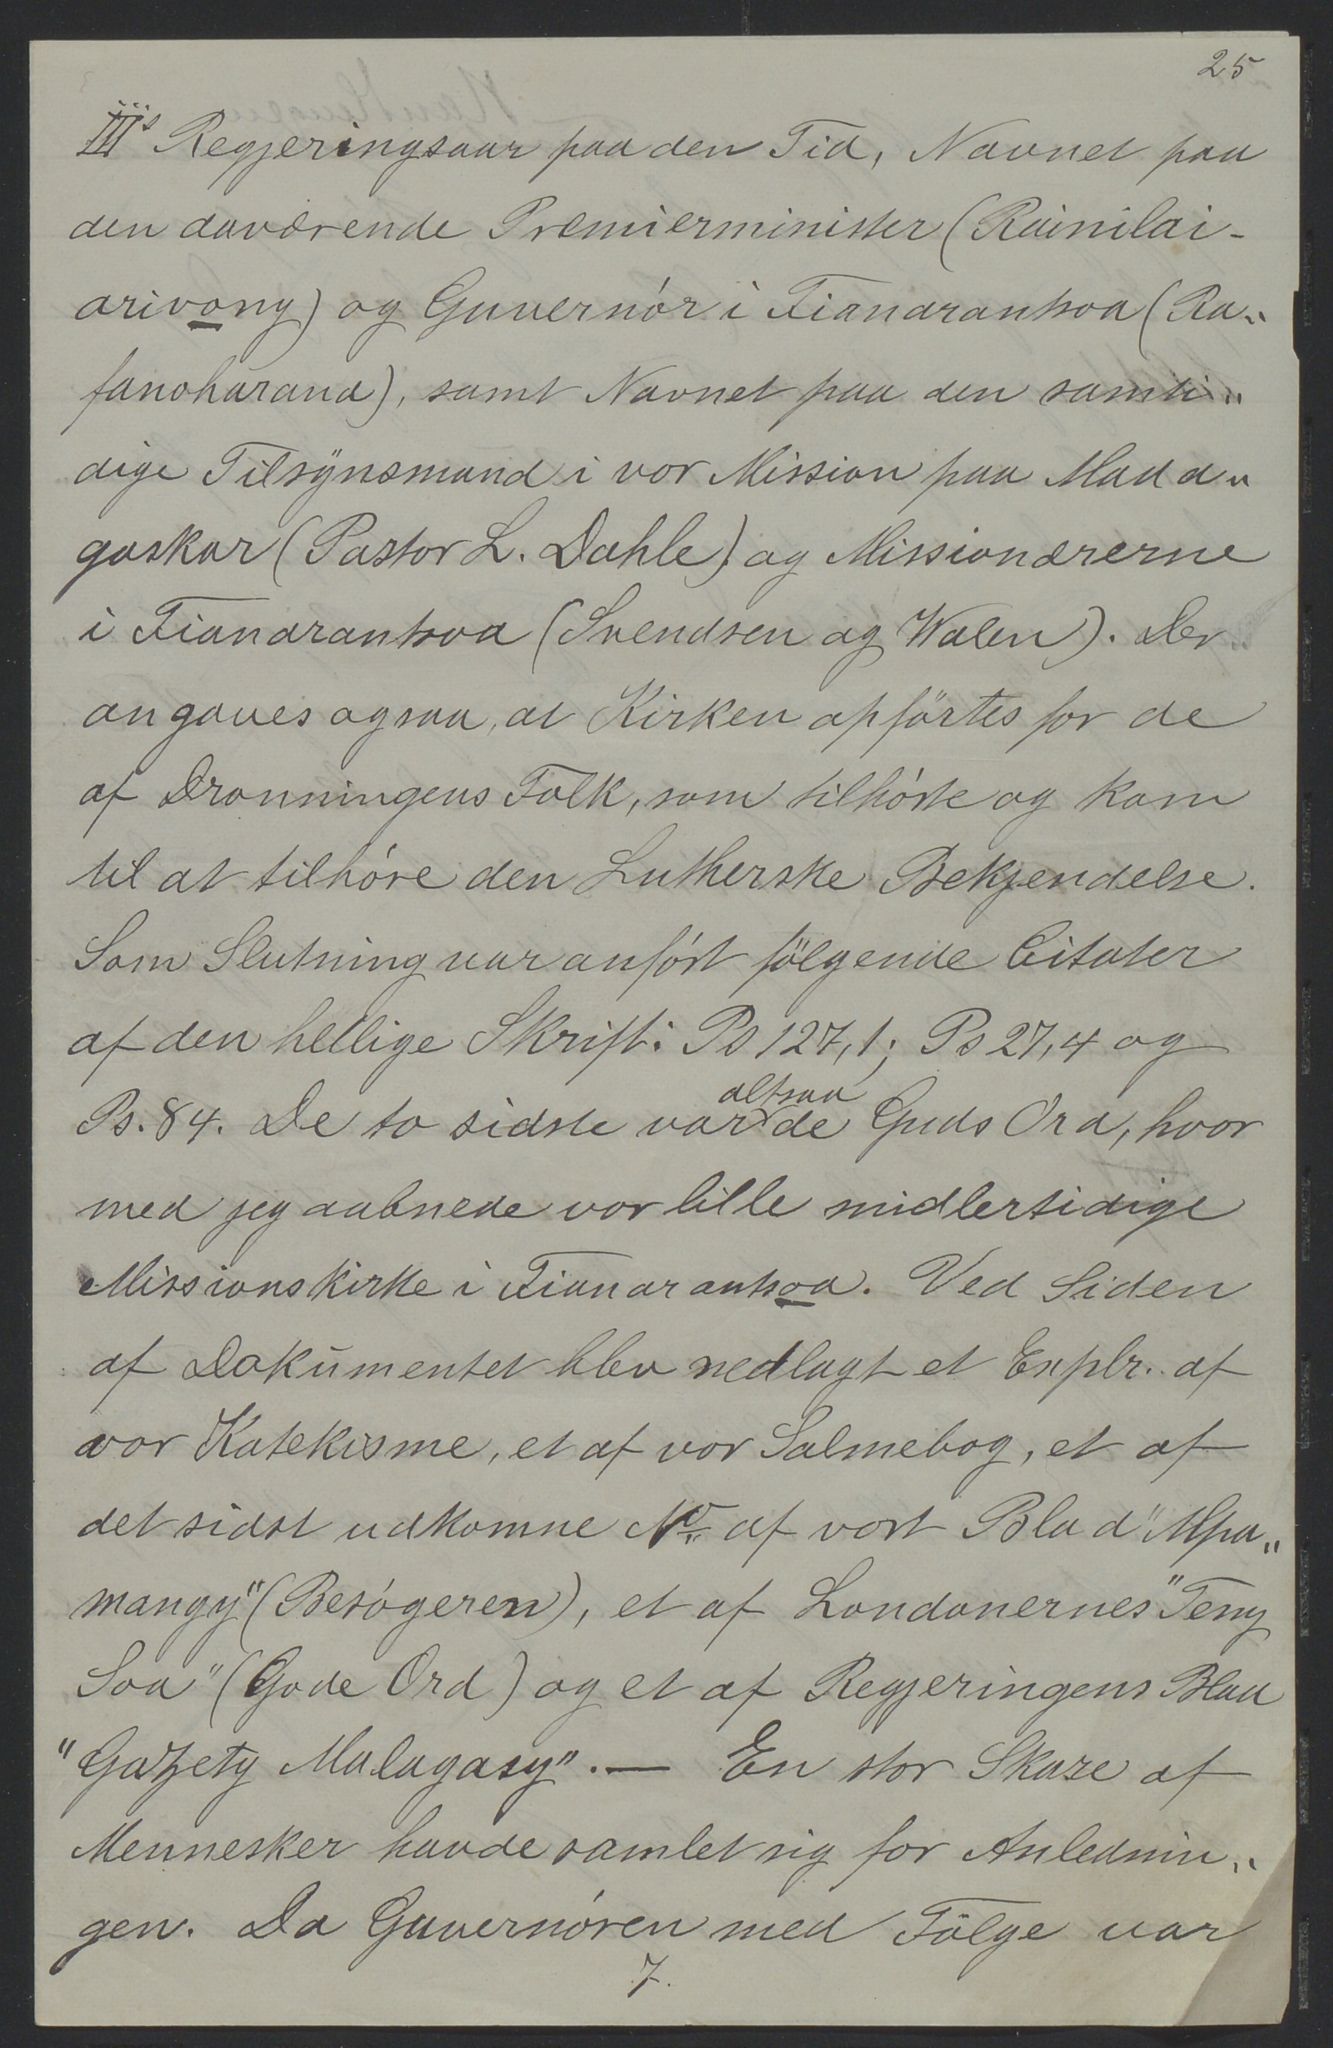 25
III's Regjeringsaar paa den Tid, Navnet paa
den daværende Premierminister (Rainilai-
arivony) og Guvernör i Fianarantsoa (Ra„
fanoharana), samt Navnet paa den samti„
dige Tilsynsmand i vor Mission paa Mada„
gaskar (Pastor L. Dahle) og Missionærerne
i Fianarantsoa (Svendsen og Walen). Der
angaves ogsaa, at Kirken opförtes for de
af Dronningens Folk, som tilhörte og kom
til at tilhöre den Lutherske Bekjendelse.
Som Slutning var anfört fölgende Citater
af den hellige Skrift: Ps 127,1; Ps 27,4 og
altsaa
Ps. 84. De to sidste var de Guds Ord, hvor
med jeg aabnede vor lille midlertidige
Missionskirke i Fianarantsoa. Ved Siden
af Dokumentet blev nedlagt et Explr. af
vor Katekisme, et af vor Salmebog, et af
det sidst udkomne No af vort Blad "Mpa„
mangy" (Besögeren), et af Londonernes "Teny
Soa" (Gode Ord) og et af Regjeringens Blad
"Gazety Malagasy". — En stor Skare af
Mennesker havde samlet sig for Anlednin„
gen. Da Guvernören med Fölge var
7.